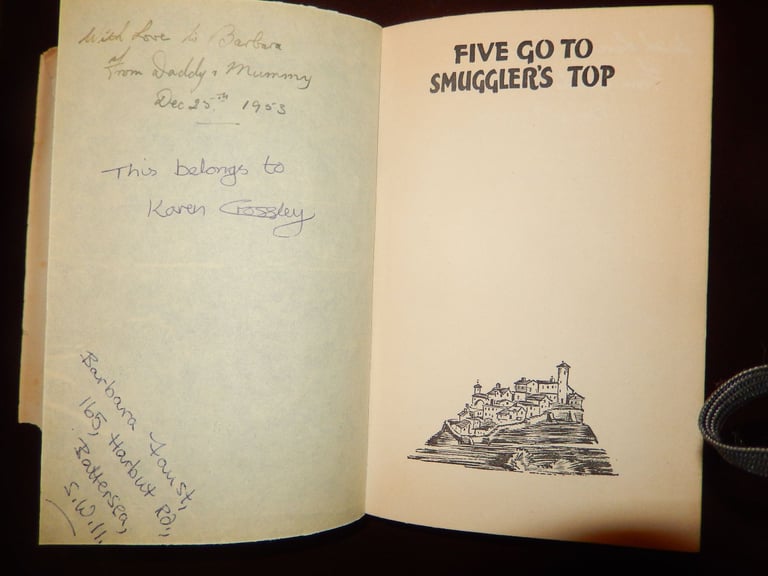 With Love to Barbara
From Daddy & Mummy
Dec 25th 1953
This belongs to
Karen Crossley
Barbara Faust,
165, Harbut Rd.,
Battersea,
S.W.11.
FIVE GO TO
SMUGGLER'S TOP